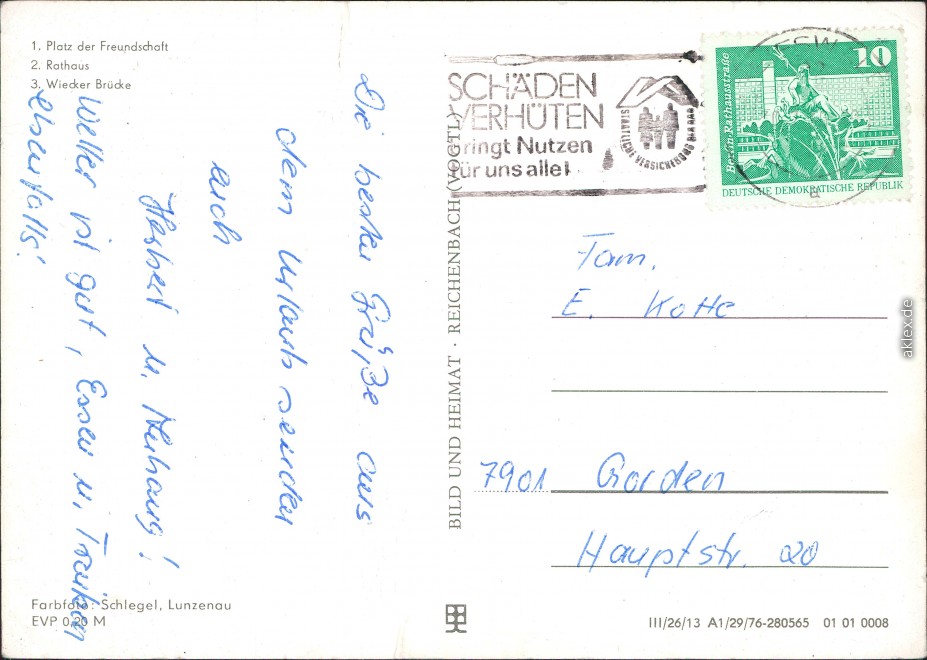 1. Platz der Freundschaft
2. Rathaus
3. Wiecker Brücke
Die besten Grüße aus
dem Urlaub sendet
euch
Herbert u.
Wetter ist gut, Essen u. Trinken
ebenfalls!
Farbfoto: Schlegel, Lunzenau
EVP 0,20 M
BILD UND HEIMAT · REICHENBACH (VOGTL)
SCHÄDEN
VERHÜTEN
ringt Nutzen
für uns alle!
STAATLICHE VERSICHERUNG DER DDR
10
Berlin-Rathausstraße
DEUTSCHE DEMOKRATISCHE REPUBLIK
Fam.
E. Kotte
7901 Gorden
Hauptstr. 20
III/26/13 A1/29/76-280565 01 01 0008
aklex.de